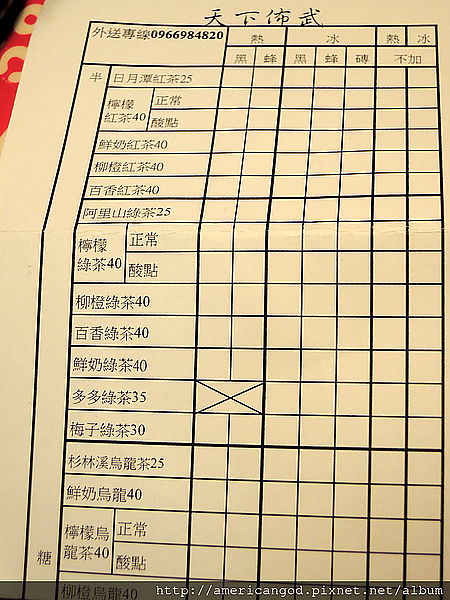 天下佈武
外送專線0966984820
熱 冰 熱 冰
黑 蜂 黑 蜂 磚 不加
半
日月潭紅茶25
檸檬紅茶40 正常
酸點
鮮奶紅茶40
柳橙紅茶40
百香紅茶40
阿里山綠茶25
檸檬綠茶40 正常
酸點
柳橙綠茶40
百香綠茶40
鮮奶綠茶40
多多綠茶35
梅子綠茶30
杉林溪烏龍茶25
鮮奶烏龍40
檸檬烏龍茶40 正常
酸點
糖
柳橙烏龍40
http://americangod.pixnet.net/album